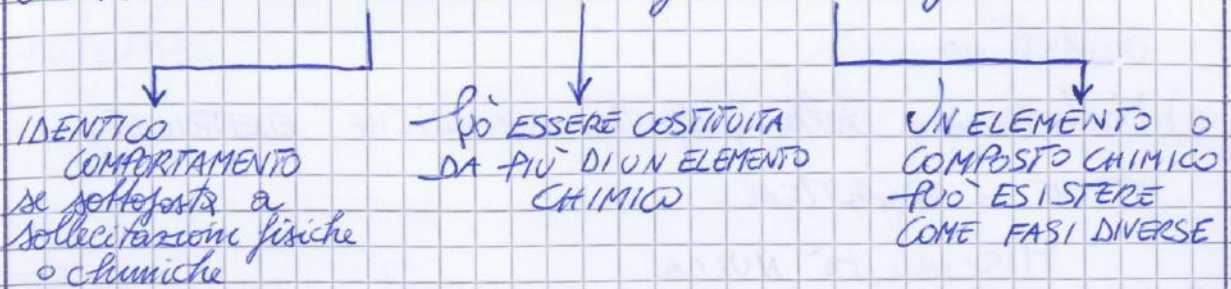 IDENTICO
COMPORTAMENTO
se sottoposta a
sollecitazioni fisiche
o chimiche
PUÒ ESSERE COSTITUITA
DA PIÙ DI UN ELEMENTO
CHIMICO
UN ELEMENTO O
COMPOSTO CHIMICO
PUÒ ESISTERE
COME FASI DIVERSE